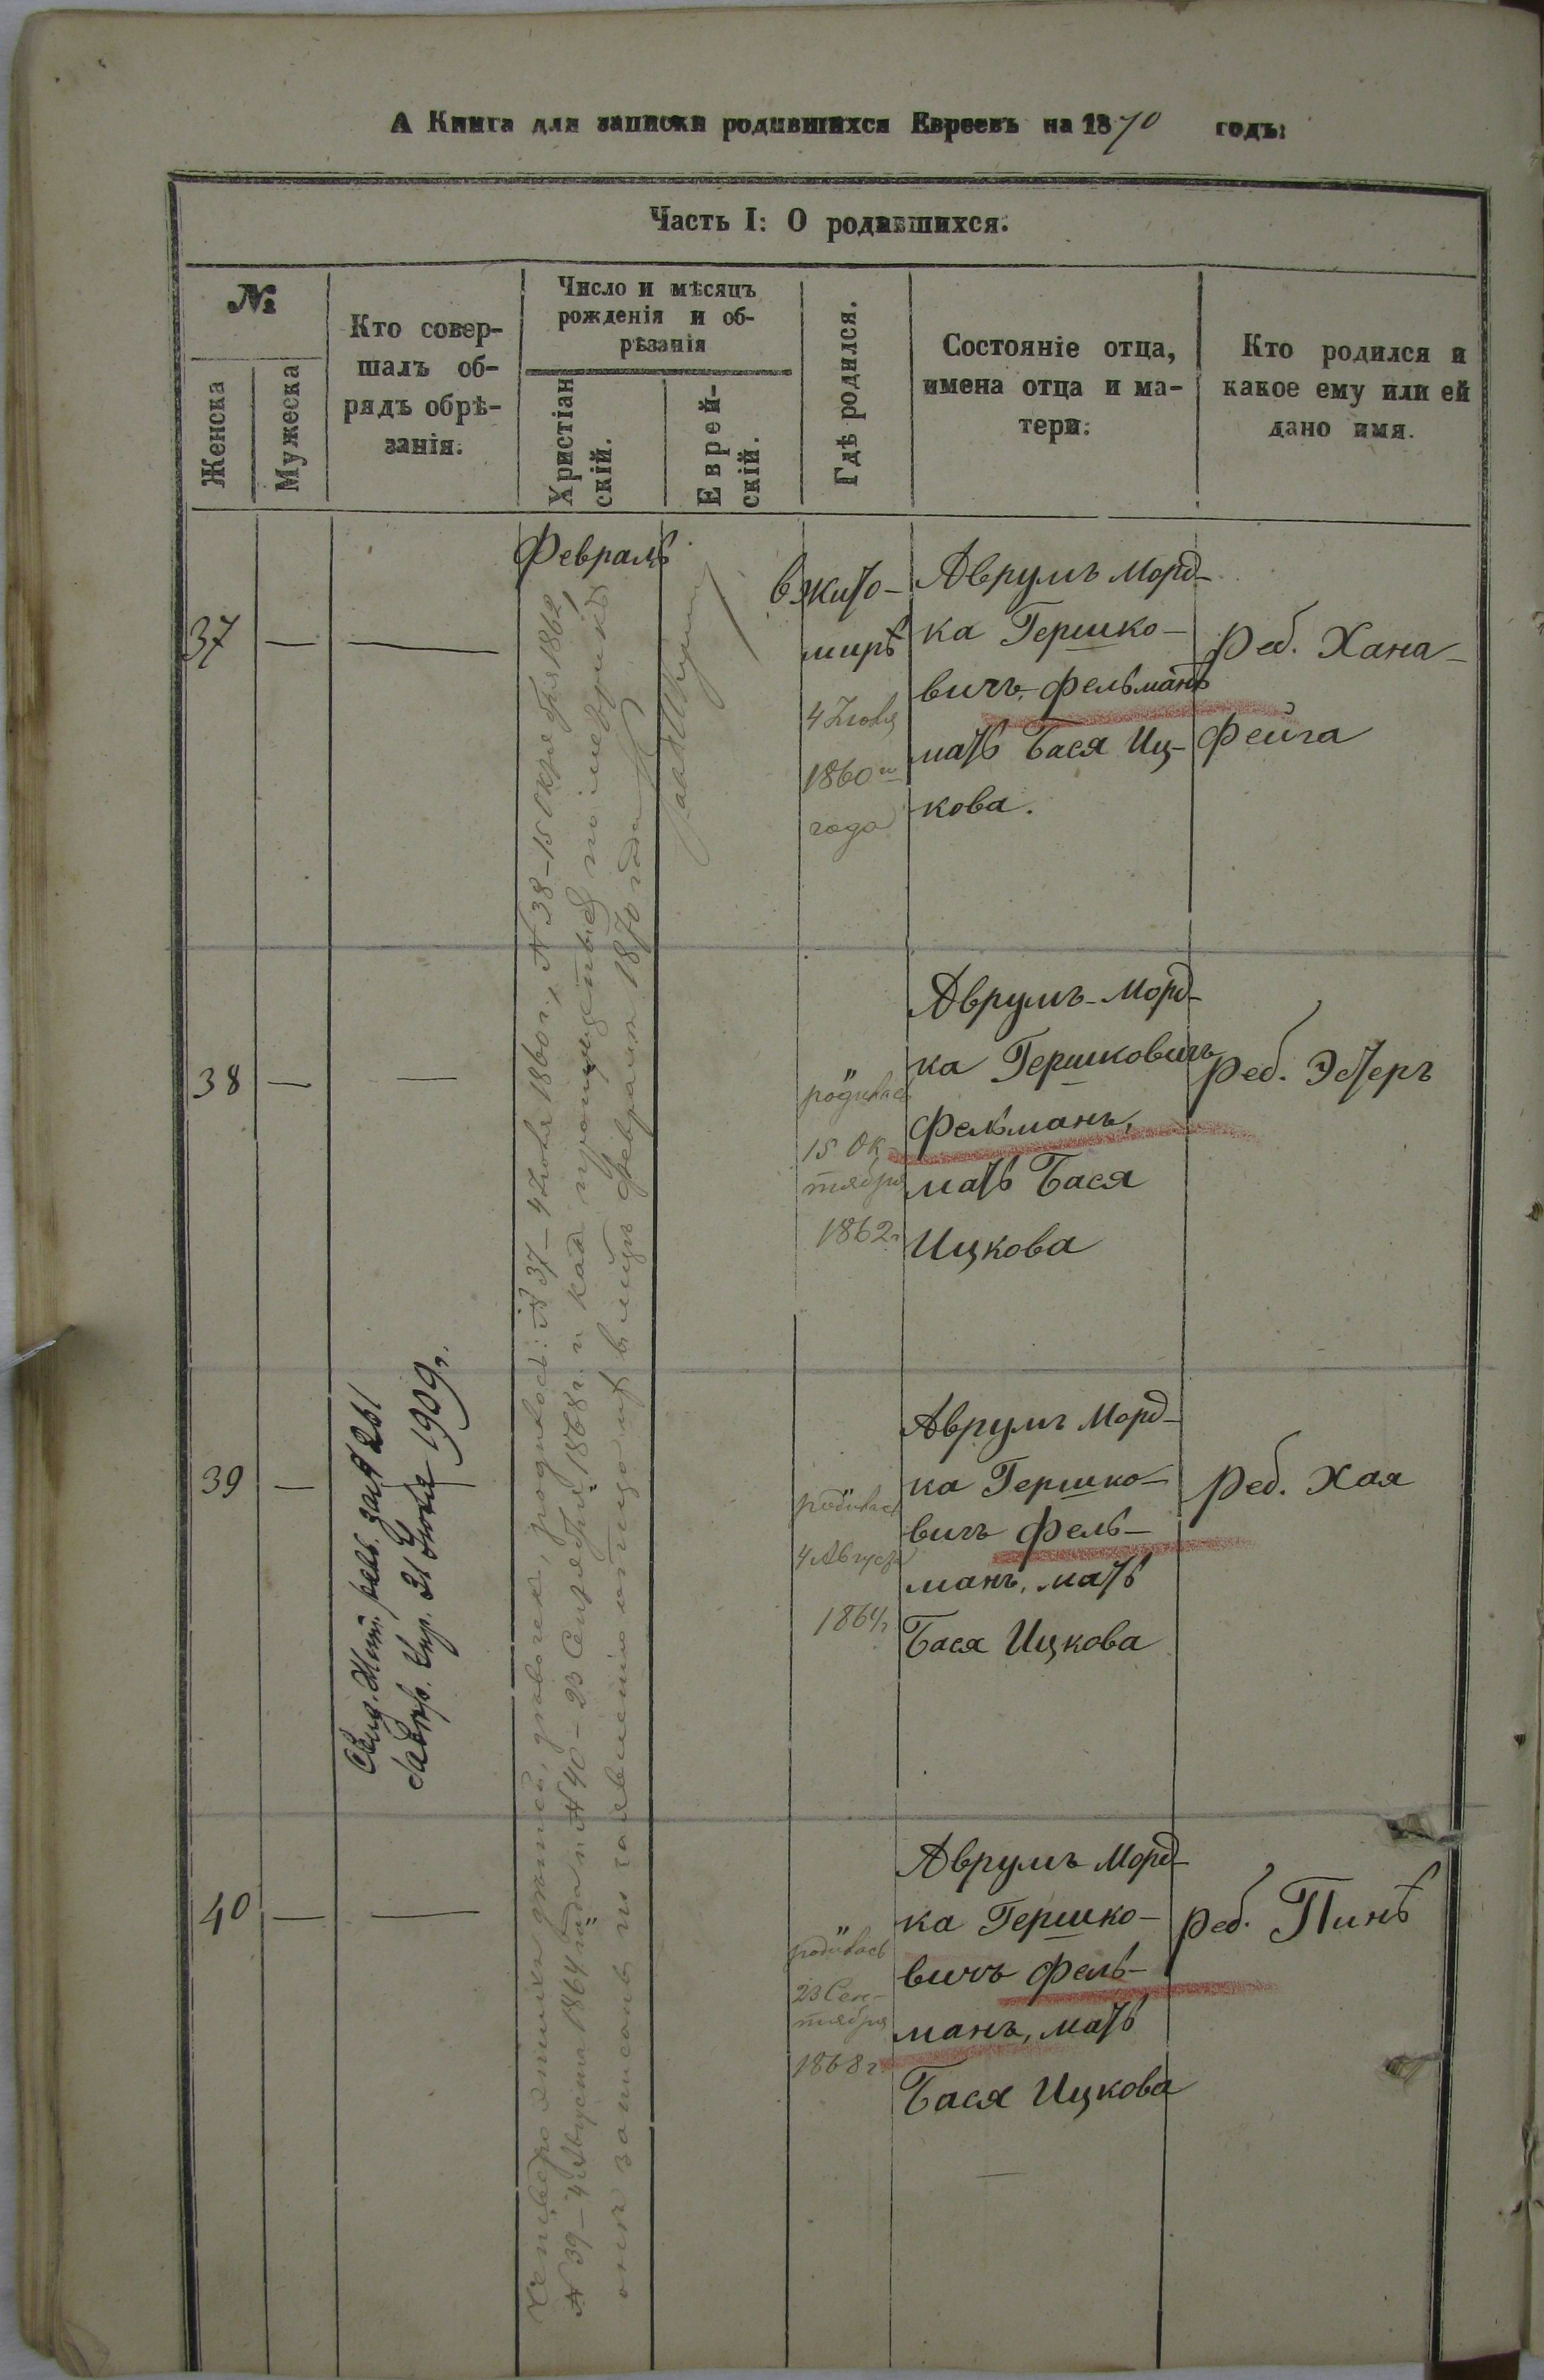 А Книга для записки родившихся Евреевъ на 1870 годъ:
Часть I: О родившихся.
№
Женска
Мужеска
Кто совер-
шалъ об-
рядъ обрѣ-
занія.
Число и мѣсяцъ
рожденія и об-
рѣзанія
Христіан
скій.
Еврей-
скій.
Гдѣ родился.
Состояніе отца,
имена отца и ма-
тери.
Кто родился и
какое ему или ей
дано имя.
Февраль
37 — —
в Жито-
мирѣ
4 Іюля
1860 го
года
Аврумъ Морд-
ка Гершко-
вичъ Фельманъ
мать Бася Иц-
кова.
Реб. Хана-
Фейга
38 — —
"
родилась
15 Ок-
тября
1862 г
Аврумъ-Морд-
ка Гершковичъ
Фельманъ,
мать Бася
Ицкова
Реб. Эстеръ
39 —
31 Іюля 1909 г.
"
родилась
4 Августа
1864 г
Аврумъ Морд-
ка Гершко-
вичъ Фель-
манъ, мать
Бася Ицкова
Реб. Хая
40 — —
"
родилась
23 Сен-
тября
1868 г
Аврумъ Морд-
ка Гершко-
вичъ Фель-
манъ, мать
Бася Ицкова
Реб. Пинѣ
Четверо этихъ дѣтей, дѣвочек, родилось: № 37 – 4 Іюля 1860 г, № 38 – 15 Октября 1862,
№ 39 – 4 Августа 1864 года и № 40 – 23 Сентября 1868 г. и как по
они записаны по заявленію отца в Февралѣ 1870 года